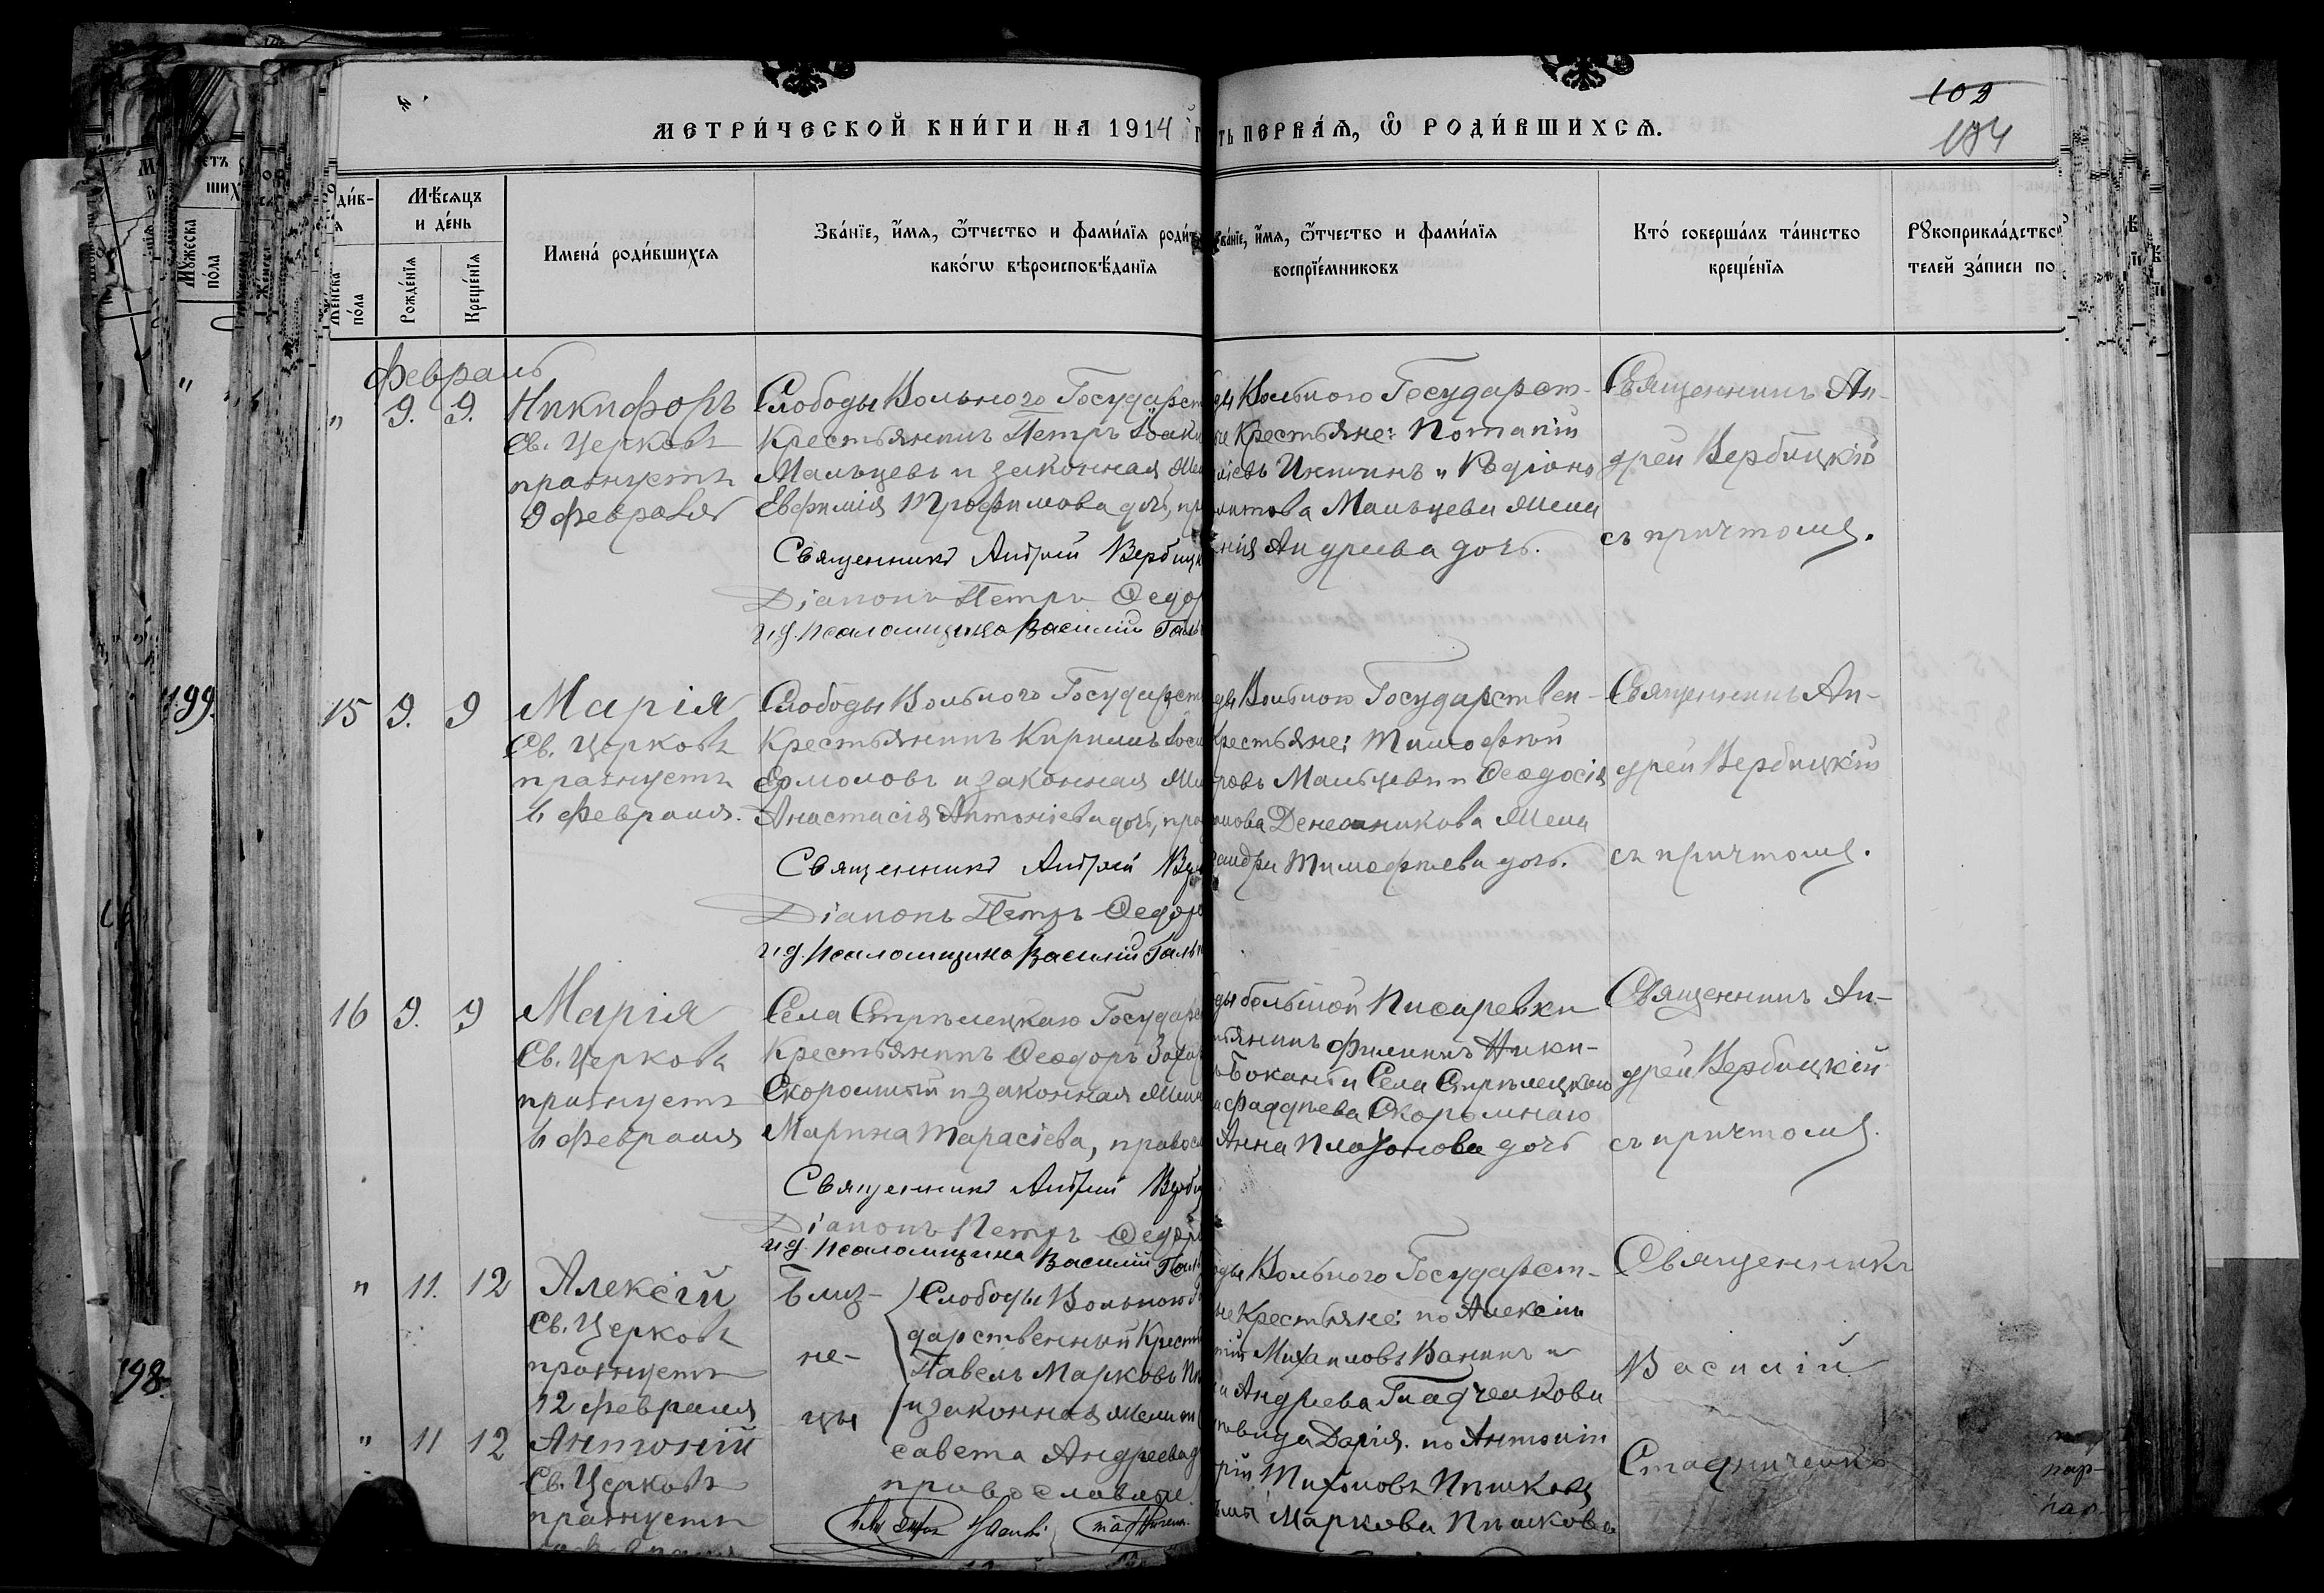 102
184
МЕТРИ́ЧЕСКОЙ КНИ́ГИ НА 1914 Г
ТЬ ПЕРВА́Я, Ѿ РОДИ́ВШИХСЯ.
Мѣ́сяцъ
и де́нь
Рожде́нїя
Креще́нїя
Же́нска
по́ла
Имена́ роди́вшихся
Зва́нїе, и́мя, ѻ́тчество и фами́лїя роди́т
како́гѡ вѣроисповѣ́данїя
Зва́нїе, и́мя, ѻ́тчество и фами́лїя
воспрїе́мниковъ
Кто̀ соверша́лъ та́инство
креще́нїя
Рꙋкоприкла́дство
телей за́писи по
Мꙋ́жеска
по́ла
Февраль
" 9. 9.
Никифоръ
Св. Церковь
празнуетъ
9 февраля
Слободы Вольного Государст
Крестьянинъ Петръ Иоаки
Мальцевъ и законная Же
Евфимія Трофимова дочь, пр
Священникъ Андрей Вербицк
Діаконъ Петръ Ѳедор
и.д. псаломщика Василій Галь
ды Вольного Государст-
ые Крестьяне: Потапій
Никитинъ и Родіона
Мальцева Жена
Андреева дочь.
Священникъ Ан-
дрей Вербицкій
съ причтомъ.
199.
15 9. 9
Марія
Св. Церковь
празнуетъ
6 Февраля.
Слободы Вольного Государст
Крестьянинъ Кириллъ Іоси
Ермоловъ и законная Же
Анастасія Антоніева дочь, пра
Священникъ Андрей Вер
Діаконъ Петръ Ѳедор
и.д. псаломщика Василій Галь
ды Вольного Государствен-
Крестьяне: Тимофѣй
ровъ Мальцевъ и Ѳеодосія
Жена
Тимофѣева дочь.
Священникъ Ан-
дрей Вербицкій
съ причтомъ.
16 9. 9
Марія
Св. Церковь
празнуетъ
6 Февраля
Села Стрѣлецкаго Государс
Крестьянинъ Ѳеодоръ Захар
Скоромный и законная Жена
Марина Тарасіева, правосл
Священникъ Андрей Верби
Діаконъ Петръ Ѳедор
и.д. псаломщика Василій Галь
ды большой Писаревки
ьянинъ Филиппъ Ники-
Боканъ и Села Стрѣлецкаго
Фаддѣева Скоромнаго
Анна Платонова дочь
Священникъ Ан-
дрей Вербицкій
съ причтомъ.
" 11. 12
Алексій
Св. Церковь
празнуетъ
12 февраля
198.
" 11 12
Антоній
Св. Церковь
празнуетъ
Близ-
не-
цы
Слободы Вольного
дарственный Крест
Павелъ Марковъ
и законная Жена
савета Андреева д
православные.
оды Вольного Государст-
ые Крестьяне: по Алексію
Михаиловъ Ванинъ и
Андреева
Дарія. по Антонію
рій Тихоновъ Пѣшковъ
Маркова Пѣшкова
Священникъ
Василій
Стадниченко
пар-
пар-